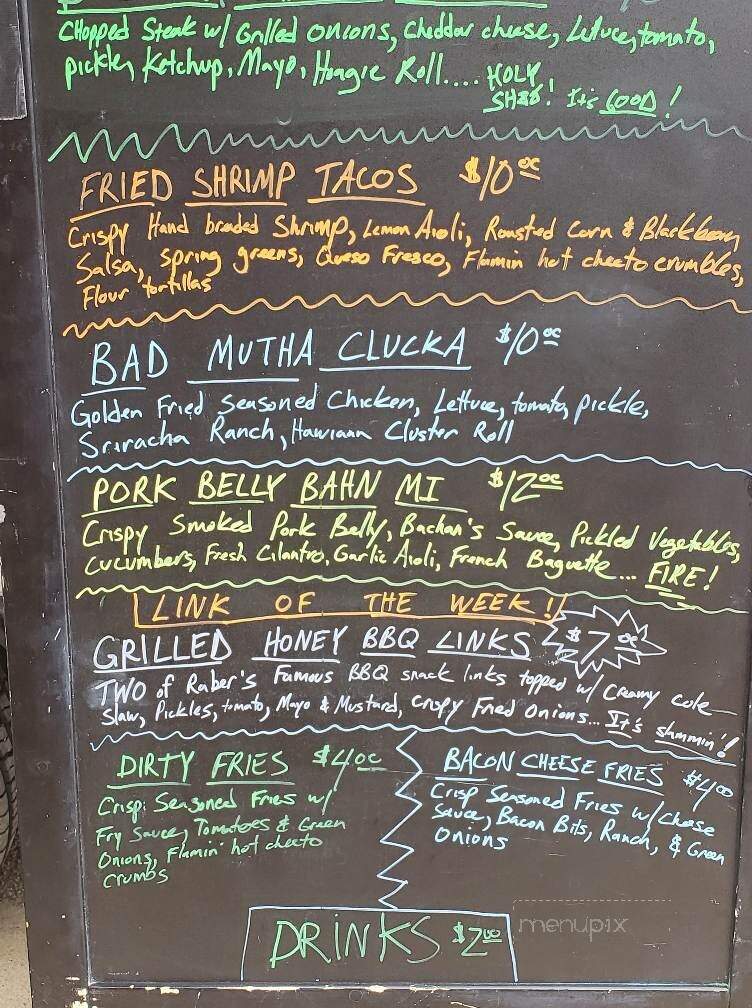 Chopped Steak w/ Grilled onions, Cheddar cheese, Lettuce, tomato,
pickle, Ketchup, Mayo, Hoagie Roll.... HOLY
SH&%! It's GOOD!
FRIED SHRIMP TACOS $10.00
Crispy Hand breaded Shrimp, Lemon Aioli, Roasted Corn & Blackbean
Salsa, spring greens, Queso Fresco, Flamin hot cheeto crumbles,
Flour tortillas
BAD MUTHA CLUCKA $10.00
Golden Fried Seasoned Chicken, Lettuce, tomato, pickle,
Sriracha Ranch, Hawiaan Cluster Roll
PORK BELLY BAHN MI $12.00
Crispy Smoked Pork Belly, Bachan's Sauce, Pickled Vegetables,
Cucumbers, Fresh Cilantro, Garlic Aioli, French Baguette... FIRE!
LINK OF THE WEEK!!
GRILLED HONEY BBQ LINKS $7.00
TWO of Raber's Famous BBQ snack links topped w/ Creamy cole
slaw, Pickles, tomato, Mayo & Mustard, crispy Fried Onions... It's slammin'!
DIRTY FRIES $4.00
Crisp Seasoned Fries w/
Fry Sauce, Tomatoes & Green
Onions, Flamin' hot cheeto
Crumbs
BACON CHEESE FRIES $4.00
Crisp Seasoned Fries w/ Cheese
Sauce, Bacon Bits, Ranch, & Green
Onions
DRINKS $2.00
menupix